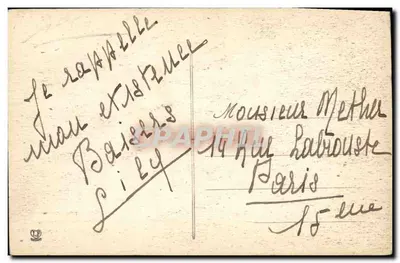 Je rappelle
mon existence
Baisers
Lily
Monsieur Methu
14 Rue Labrouste
Paris
15 eme